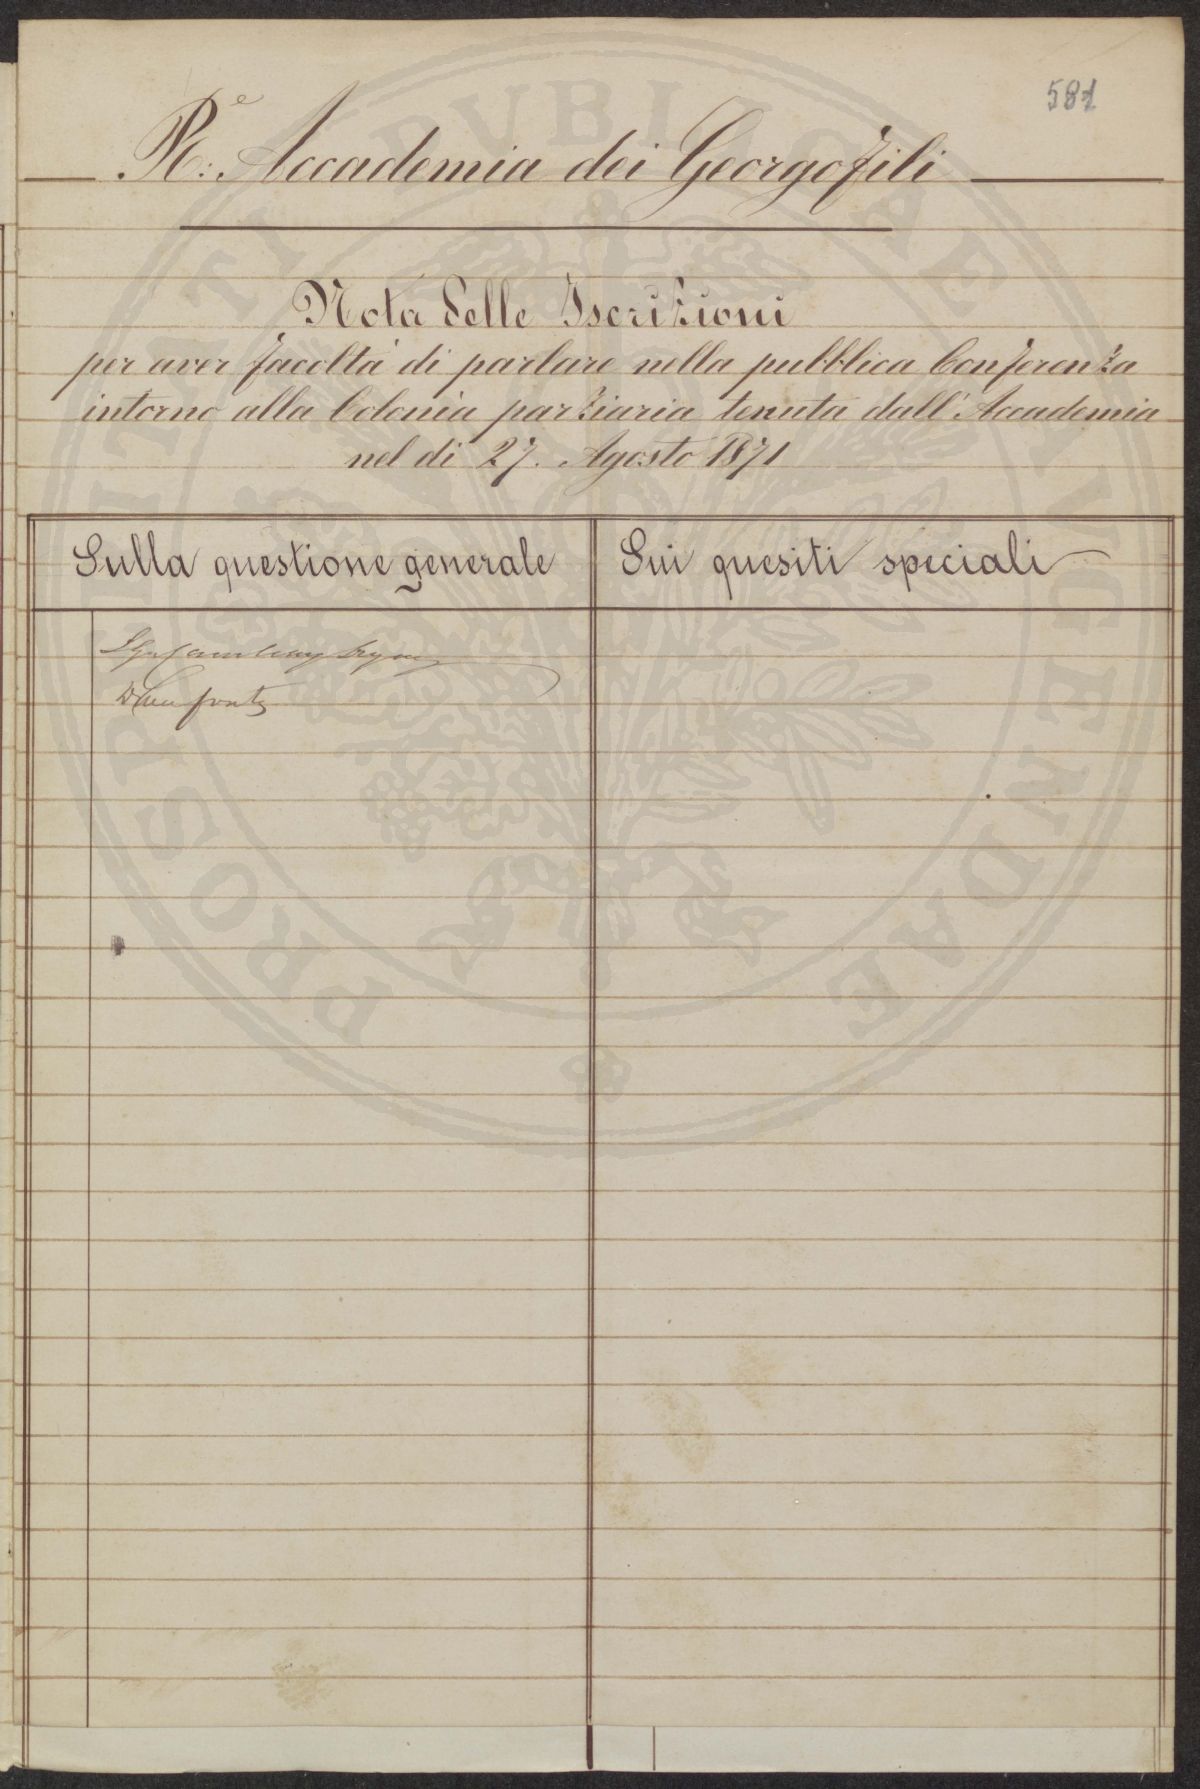 581
R.e Accademia dei Georgofili
Nota delle Iscrizioni
per aver facoltà di parlare nella pubblica Conferenza
intorno alla Colonia parziaria tenuta dall'Accademia
nel di 27. Agosto 1871
Sulla questione generale
Sui quesiti speciali
PROSPERITATI PUBLICAE AUGENDAE